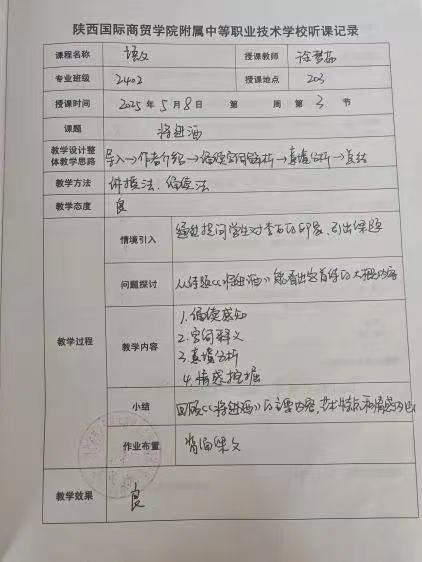 陕西国际商贸学院附属中等职业技术学校听课记录
课程名称 语文 授课教师
专业班级 2402 授课地点 203
授课时间 2025年5月8日 第 周 第3节
课题 将进酒
教学设计整体教学思路 导入→作者介绍→诵读字词解析→意境分析→总结
教学方法 讲授法、诵读法
教学态度 良
教学过程
情境引入 通过提问学生对李白的印象,引出课题
问题探讨 从标题《将进酒》能看出这首诗的大概内容
教学内容
1.诵读感知
2.字词释义
3.意境分析
4.情感挖掘
小结 回顾《将进酒》的主要内容,艺术特点和情感
作业布置 背诵课文
教学效果 良